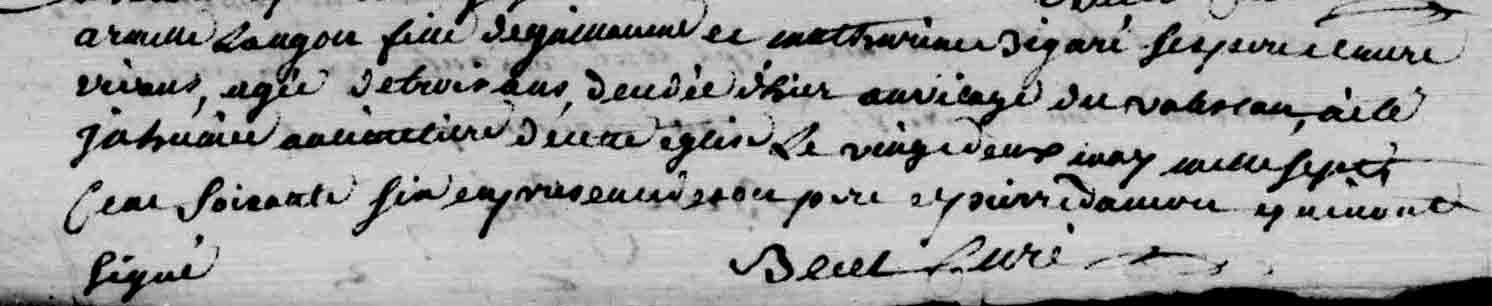 armelle Langou fille de guillaume et mathurine Bigaré ses pere et mere
vivans, agée de trois ans, decedée d'hier au village du vobscau, a eté
inhumée au cimetiere de cette eglise Le vingt deux may mille sept
Cent Soixante six en presence de son pere et pierre damon qui n'ont
signé
Becel Curé